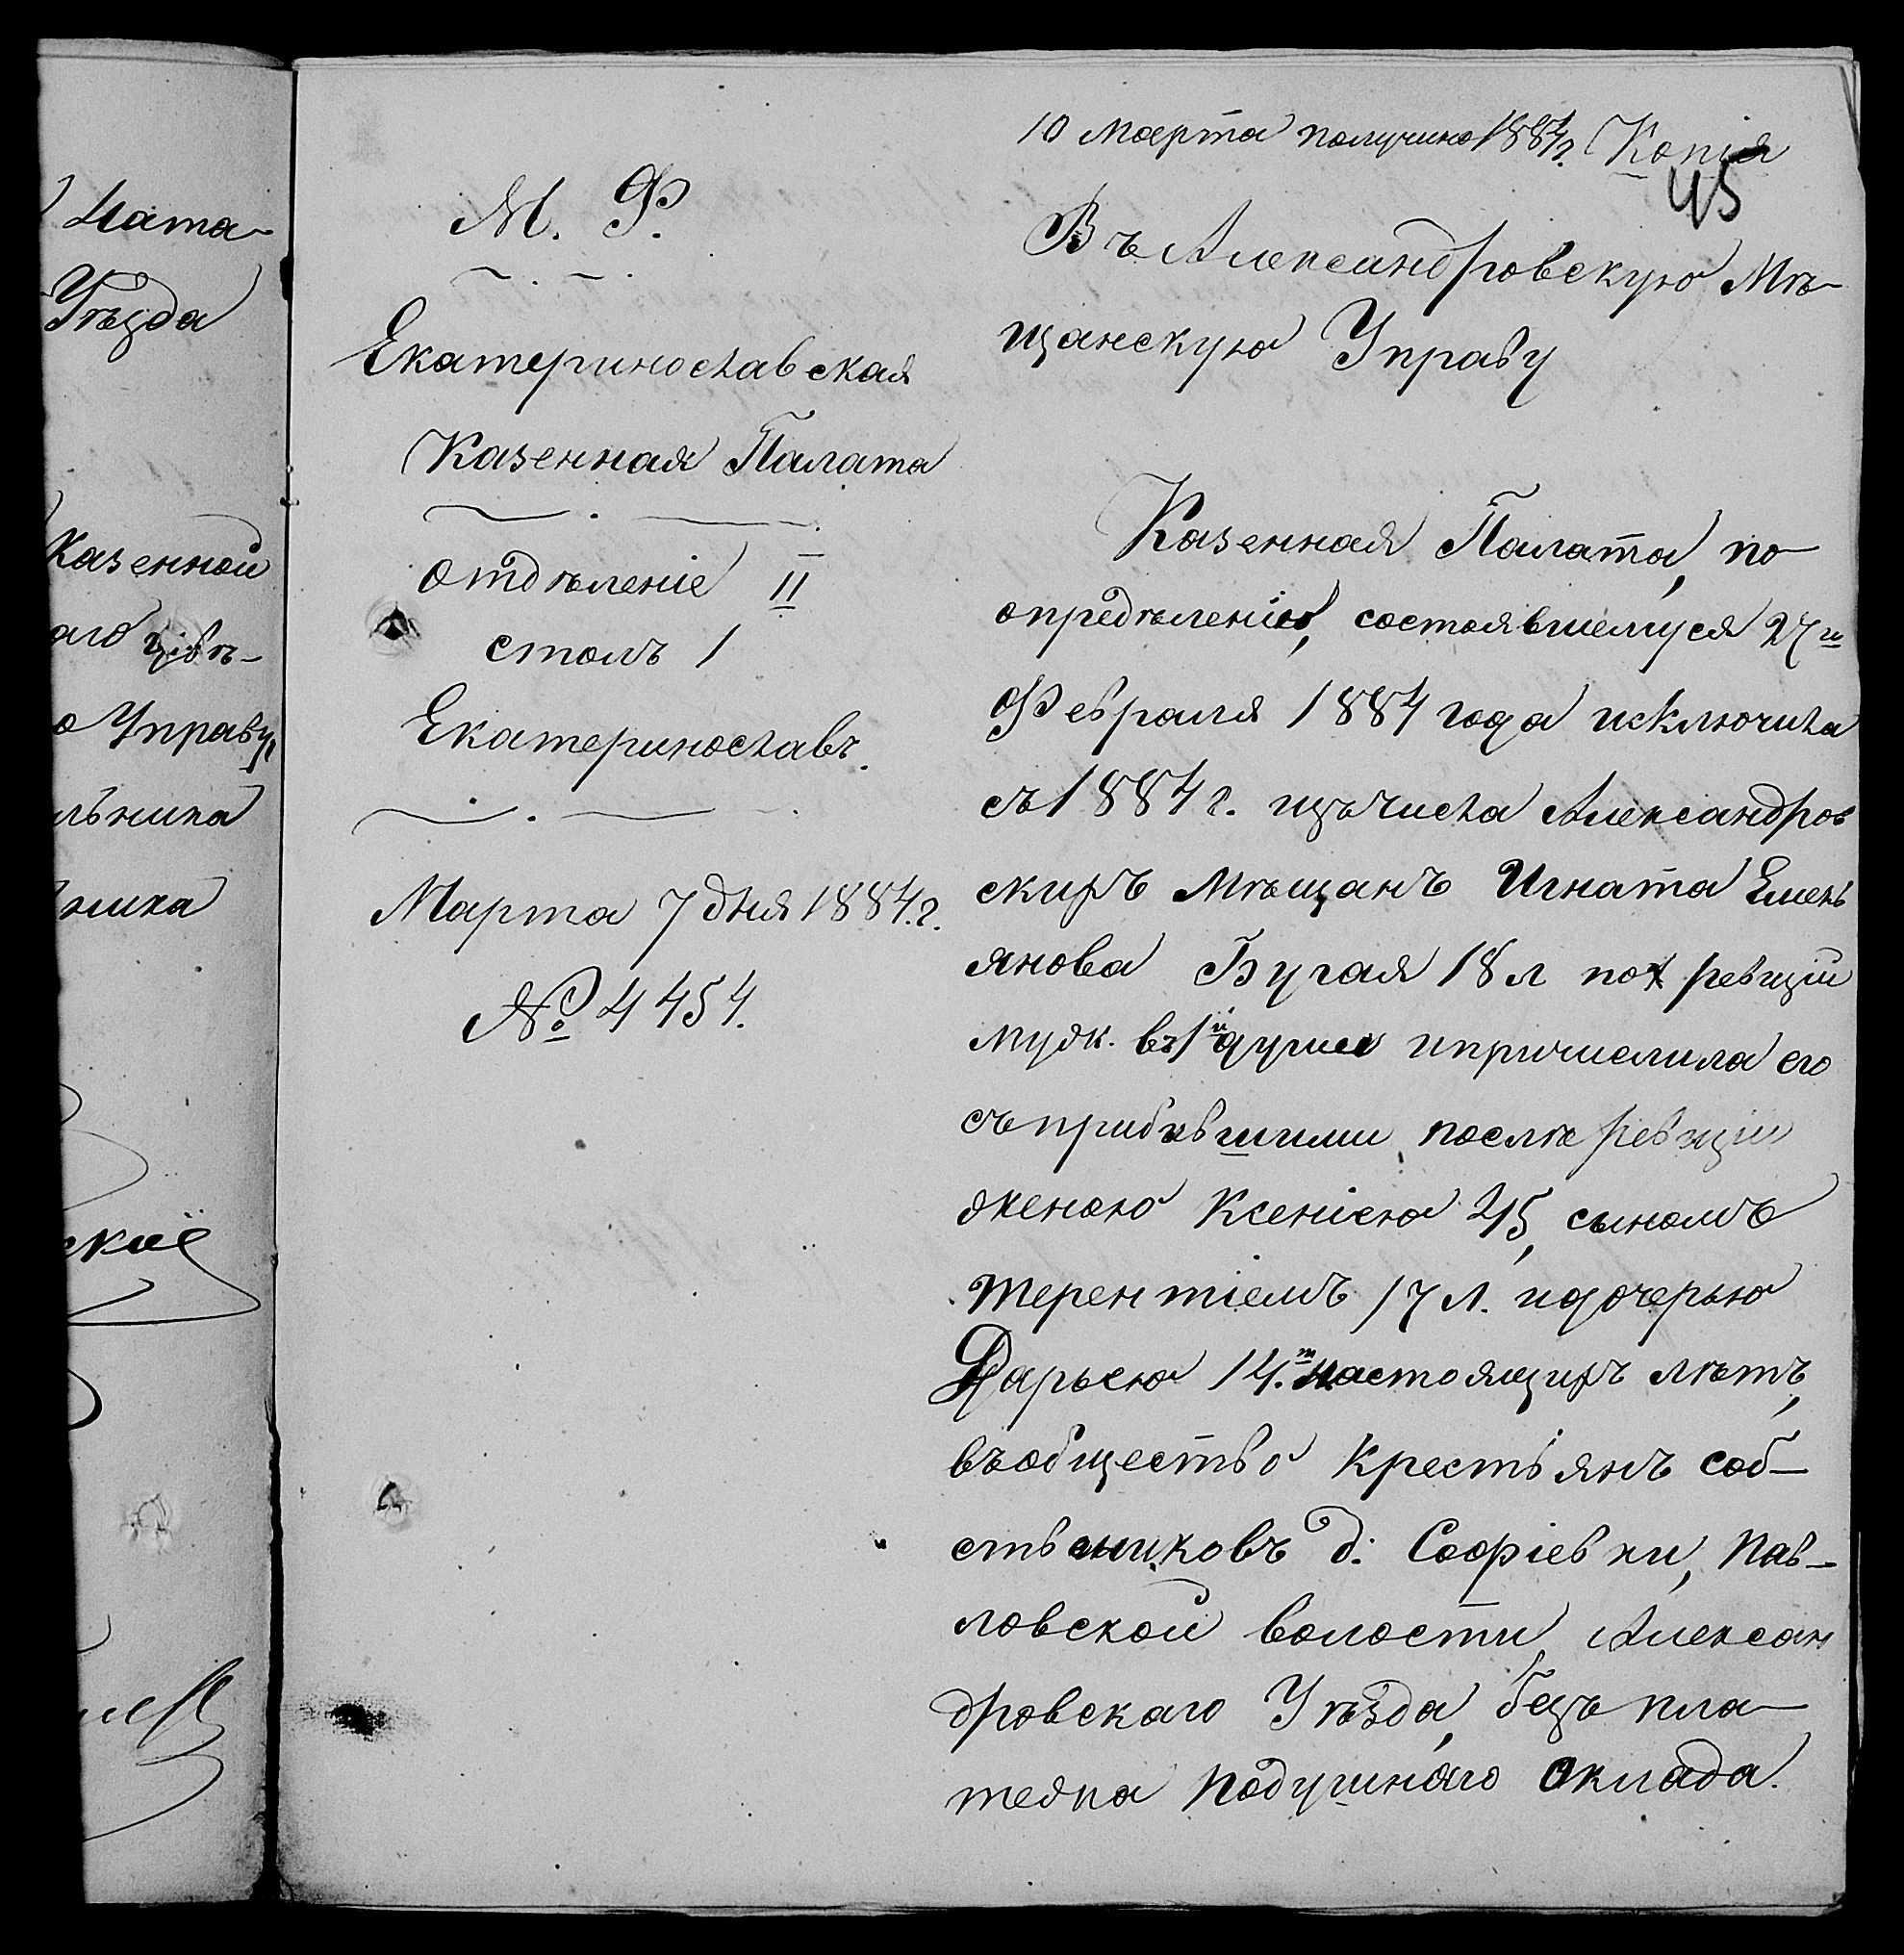 Ната-
Уѣзда
Казенной
аго
Управу,
льника
ника
10 Марта получино 1884 г. Копія
45
М. Ф.
Екатеринославская
Казенная Палата
Отдѣленіе II
столъ 1
Екатеринославъ.
Марта 7 дня 1884 г.
№ 4454.
Въ Александровскую Мѣ-
щанскую Управу
Казенная Палата, по
опредѣленію, состоявшемуся 27 и
Февраля 1884 года исключила
съ 1884 г. изъ числа Александров
скихъ Мѣщанъ Игната Емель
янова Бугая 18 л по X ревизіи
мужк. въ 1й душе и причислила его
съ прибывшими после ревизіи
женою Ксеніею 45, сыномъ
Терентіемъ 17 л. и дочерью
Дарьею 14.ти настоящихъ лѣтъ,
въ общество Крестьянъ соб-
ственниковъ д: Софіевки, Пав-
ловской волости, Алексан
дровскаго Уѣзда, безъ пла-
тежа подушнаго оклада.